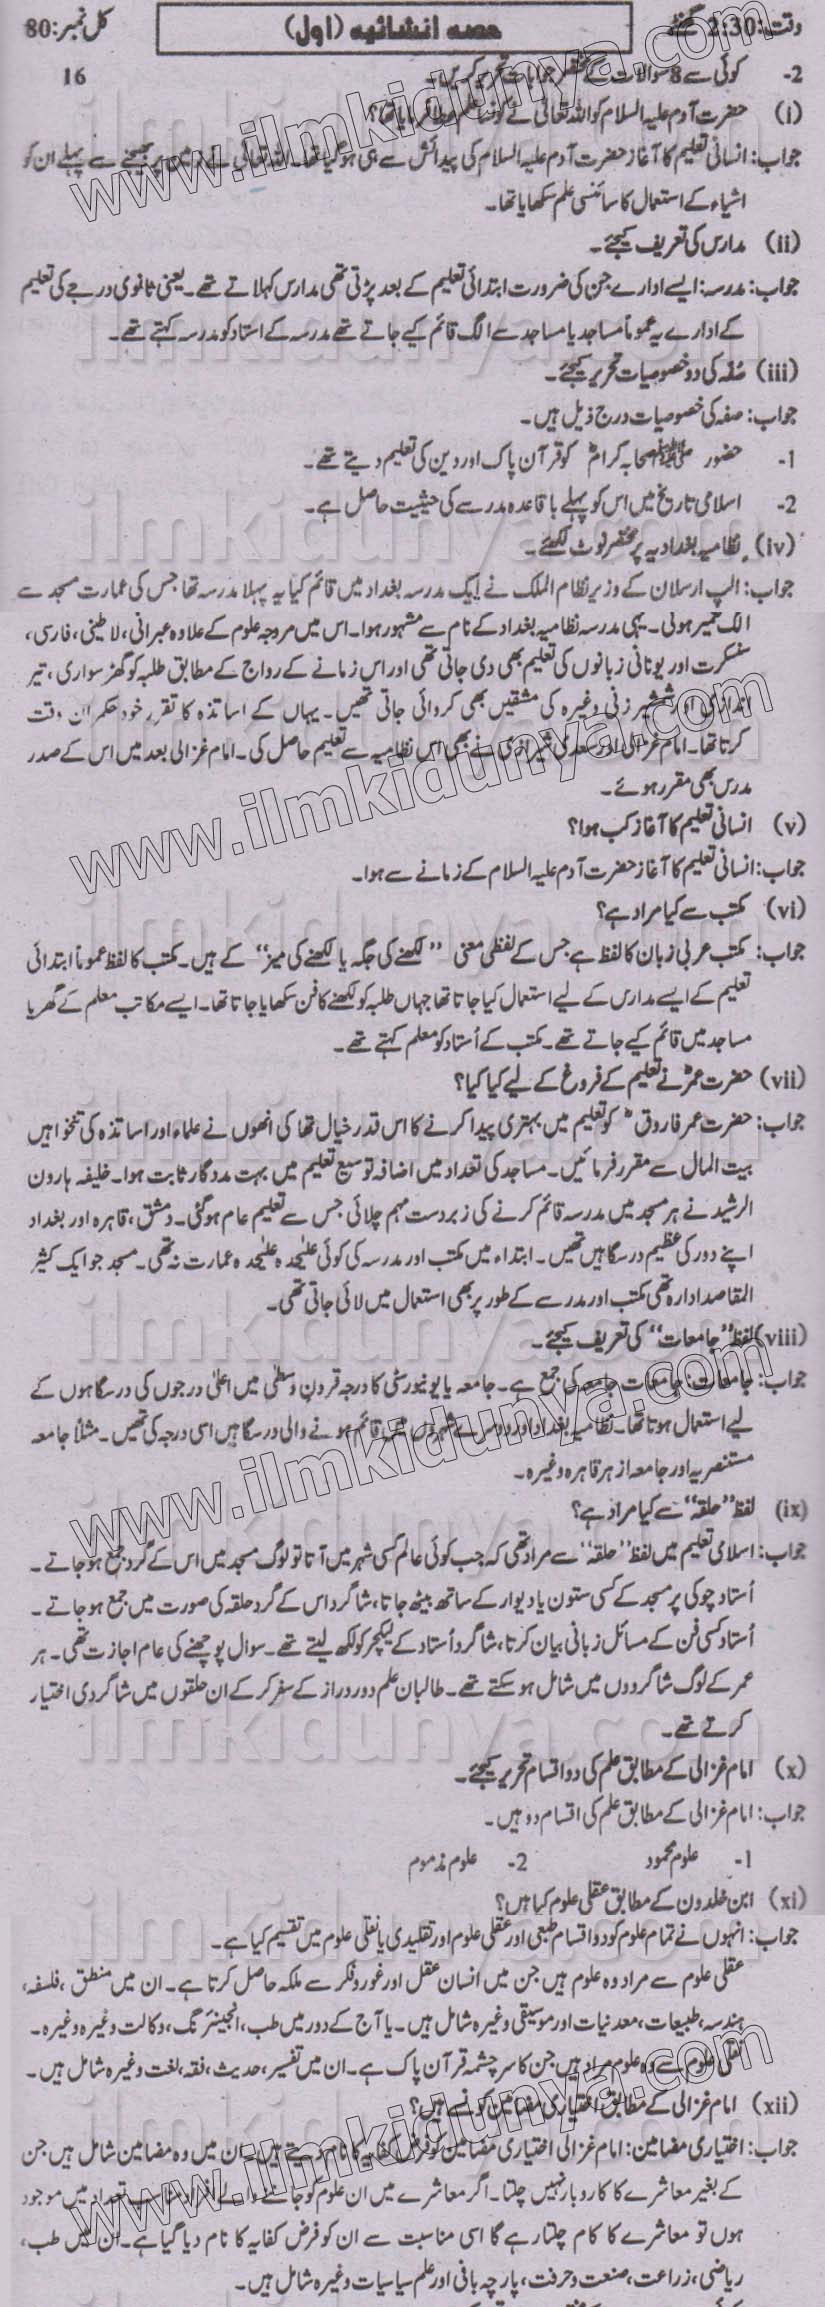 وقت: 2:30 گھنٹے حصہ انشائیہ (اول) کل نمبر: 80
2- کوئی سے 8 سوالات کے مختصر جوابات تحریر کریں۔ 16
(i) حضرت آدم علیہ السلام کو اللہ تعالیٰ نے کونسا علم عطا فرمایا تھا؟
جواب: انسانی تعلیم کا آغاز حضرت آدم علیہ السلام کی پیدائش سے ہی ہو گیا تھا۔ اللہ تعالیٰ نے زمین پر بھیجنے سے پہلے ان کو
اشیاء کے استعمال کا سائنسی علم سکھایا تھا۔
(ii) مدارس کی تعریف کیجئے۔
جواب: مدرسہ: ایسے ادارے جن کی ضرورت ابتدائی تعلیم کے بعد پڑتی تھی مدارس کہلاتے تھے۔ یعنی ثانوی درجے کی تعلیم
کے ادارے یہ عموماً مساجد یا مساجد سے الگ قائم کیے جاتے تھے مدرسہ کے استاد کو مدرسہ کہتے تھے۔
(iii) صُفّہ کی دو خصوصیات تحریر کیجئے۔
جواب: صفہ کی خصوصیات درج ذیل ہیں۔
1- حضور ﷺ صحابہ کرامؓ کو قرآن پاک اور دین کی تعلیم دیتے تھے۔
2- اسلامی تاریخ میں اس کو پہلے باقاعدہ مدرسے کی حیثیت حاصل ہے۔
(iv) نظامیہ بغدادیہ پر مختصر نوٹ لکھئے۔
جواب: الپ ارسلان کے وزیر نظام الملک نے ایک مدرسہ بغداد میں قائم کیا یہ پہلا مدرسہ تھا جس کی عمارت مسجد سے
الگ تعمیر ہوئی۔ یہی مدرسہ نظامیہ بغداد کے نام سے مشہور ہوا۔ اس میں مروجہ علوم کے علاوہ عبرانی، لاطینی، فارسی،
سنسکرت اور یونانی زبانوں کی تعلیم بھی دی جاتی تھی اور اس زمانے کے رواج کے مطابق طلبہ کو گھڑ سواری، تیر
اندازی اور شمشیر زنی وغیرہ کی مشقیں بھی کروائی جاتی تھیں۔ یہاں کے اساتذہ کا تقرر خود حکمران وقت
کرتا تھا۔ امام غزالی اور سعدی شیرازی نے بھی اس نظامیہ سے تعلیم حاصل کی۔ امام غزالی بعد میں اس کے صدر
مدرس بھی مقرر ہوئے۔
(v) انسانی تعلیم کا آغاز کب ہوا؟
جواب: انسانی تعلیم کا آغاز حضرت آدم علیہ السلام کے زمانے سے ہوا۔
(vi) مکتب سے کیا مراد ہے؟
جواب: مکتب عربی زبان کا لفظ ہے جس کے لفظی معنی ’’لکھنے کی جگہ یا لکھنے کی میز‘‘ کے ہیں۔ مکتب کا لفظ عموماً ابتدائی
تعلیم کے ایسے مدارس کے لیے استعمال کیا جاتا تھا جہاں طلبہ کو لکھنے کا فن سکھایا جاتا تھا۔ ایسے مکاتب معلم کے گھر یا
مساجد میں قائم کیے جاتے تھے۔ مکتب کے اُستاد کو معلم کہتے تھے۔
(vii) حضرت عمرؓ نے تعلیم کے فروغ کے لیے کیا کیا؟
جواب: حضرت عمر فاروقؓ کو تعلیم میں بہتری پیدا کرنے کا اس قدر خیال تھا کی انھوں نے علماء اور اساتذہ کی تنخواہیں
بیت المال سے مقرر فرمائیں۔ مساجد کی تعداد میں اضافہ توسیع تعلیم میں بہت مددگار ثابت ہوا۔ خلیفہ ہارون
الرشید نے ہر مسجد میں مدرسہ قائم کرنے کی زبردست مہم چلائی جس سے تعلیم عام ہو گئی۔ دمشق، قاہرہ اور بغداد
اپنے دور کی عظیم درسگاہیں تھیں۔ ابتداء میں مکتب اور مدرسہ کی کوئی علیٰحدہ علیٰحدہ عمارت نہ تھی۔ مسجد جو ایک کثیر
المقاصد ادارہ تھی مکتب اور مدرسے کے طور پر بھی استعمال میں لائی جاتی تھی۔
(viii) لفظ ’’جامعات‘‘ کی تعریف کیجئے۔
جواب: جامعات: جامعات جامعہ کی جمع ہے۔ جامعہ یا یونیورسٹی کا درجہ قرون وسطیٰ میں اعلیٰ درجوں کی درسگاہوں کے
لیے استعمال ہوتا تھا۔ نظامیہ بغداد اور دوسرے شہروں میں قائم ہونے والی درسگاہیں اسی درجہ کی تھیں۔ مثلاً جامعہ
مستنصریہ اور جامعہ ازہر قاہرہ وغیرہ۔
(ix) لفظ ’’حلقہ‘‘ سے کیا مراد ہے؟
جواب: اسلامی تعلیم میں لفظ ’’حلقہ‘‘ سے مراد تھی کہ جب کوئی عالم کسی شہر میں آتا تو لوگ مسجد میں اس کے گرد جمع ہو جاتے۔
اُستاد چوکی پر مسجد کے کسی ستون یا دیوار کے ساتھ بیٹھ جاتا، شاگرد اس کے گرد حلقہ کی صورت میں جمع ہو جاتے۔
اُستاد کسی فن کے مسائل زبانی بیان کرتا، شاگرد اُستاد کے لیکچر کو لکھ لیتے تھے۔ سوال پوچھنے کی عام اجازت تھی۔ ہر
عمر کے لوگ شاگردوں میں شامل ہو سکتے تھے۔ طالبان علم دور دراز کے سفر کر کے ان حلقوں میں شاگردی اختیار
کرتے تھے۔
(x) امام غزالی کے مطابق علم کی دو اقسام تحریر کیجئے۔
جواب: امام غزالی کے مطابق علم کی اقسام دو ہیں۔
1- علوم محمود 2- علوم مذموم
(xi) ابن خلدون کے مطابق عقلی علوم کیا ہیں؟
جواب: انہوں نے تمام علوم کو دو اقسام طبعی اور عقلی علوم اور تقلیدی یا نقلی علوم میں تقسیم کیا ہے۔
عقلی علوم سے مراد وہ علوم ہیں جن میں انسان عقل اور غور و فکر سے ملکہ حاصل کرتا ہے۔ ان میں منطق، فلسفہ،
ہندسہ، طبیعات، معدنیات اور موسیقی وغیرہ شامل ہیں۔ یا آج کے دور میں طب، انجینئرنگ، وکالت وغیرہ وغیرہ۔
نقلی علوم سے وہ علوم مراد ہیں جن کا سرچشمہ قرآن پاک ہے۔ ان میں تفسیر، حدیث، فقہ، لغت وغیرہ شامل ہیں۔
(xii) امام غزالی کے مطابق اختیاری مضامین کونسے ہیں؟
جواب: اختیاری مضامین: امام غزالی اختیاری مضامین کو فرض کفایہ کا نام دیتے ہیں۔ ان میں وہ مضامین شامل ہیں جن
کے بغیر معاشرے کا کاروبار نہیں چلتا۔ اگر معاشرے میں ان علوم کو جاننے والے افراد مناسب تعداد میں موجود
ہوں تو معاشرے کا کام چلتا رہے گا اسی مناسبت سے ان کو فرض کفایہ کا نام دیا گیا ہے۔ ان میں طب،
ریاضی، زراعت، صنعت و حرفت، پارچہ بافی اور علم سیاسیات وغیرہ شامل ہیں۔
www.ilmkidunya.com